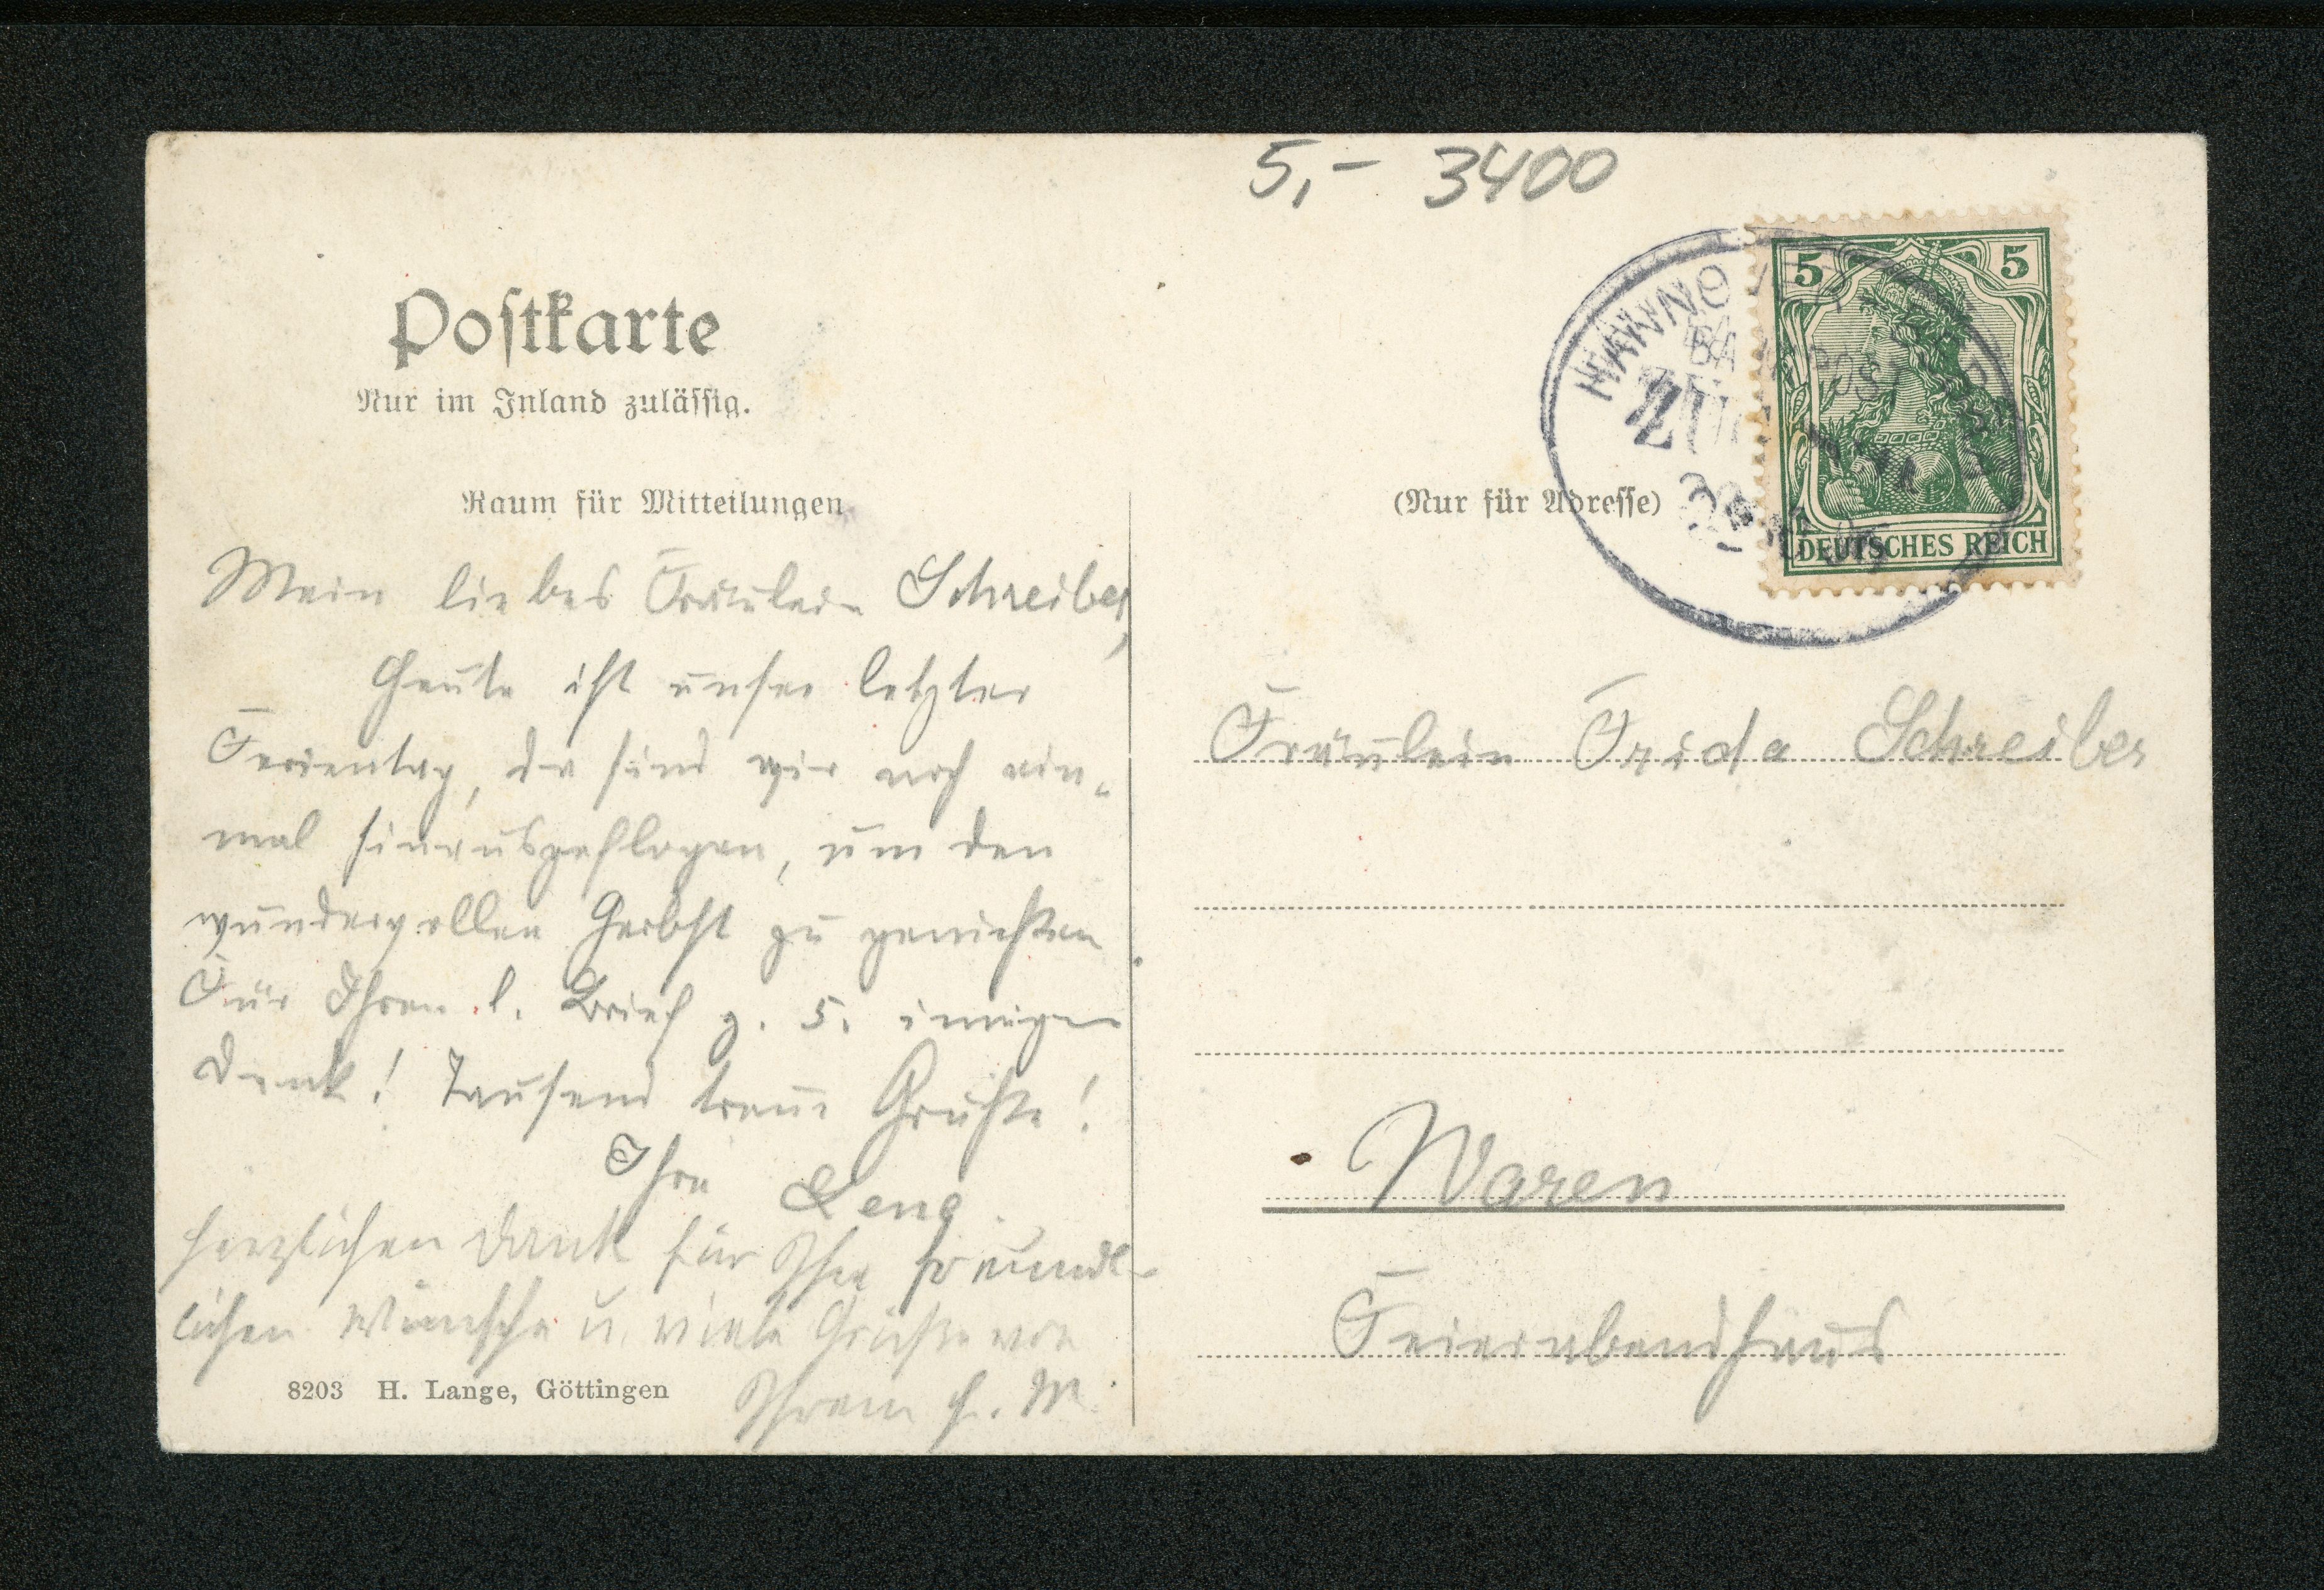 5,- 3400
Postkarte
Nur im Inland zulässig.
Raum für Mitteilungen
(Nur für Adresse)
5 5
DEUTSCHES REICH
HANNO
Mein liebes Fräulein Schreiber,
Heute ist unser letzter
Ferientag, da sind wir noch ein-
mal hinausgeflogen, um den
wundervollen Herbst zu genießen.
Für Ihren l. Brief z. 5. innigen
Dank! Tausend treue Grüße!
Ihre Lena.
Herzlichen Dank für Ihre freund-
lichen Wünsche u. viele Grüße von
Ihrem H. M.
8203 H. Lange, Göttingen
Fräulein Frida Schreiber
Waren
Feierabendhaus